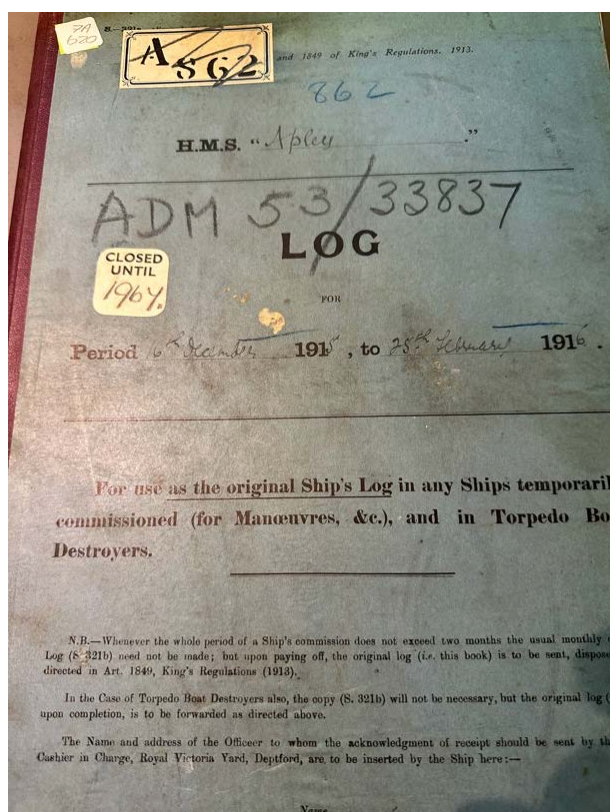 7A
620
S.
A
S62
and 1849 of King's Regulations. 1913.
862
H.M.S. "Apley."
ADM 53/33837
LOG
CLOSED
UNTIL
1964.
FOR
Period 6th December 1915, to 25th February 1916.
For use as the original Ship's Log in any Ships temporaril
commissioned (for Manœuvres, &c.), and in Torpedo Bo
Destroyers.
N.B.—Whenever the whole period of a Ship's commission does not exceed two months the usual monthly
Log (S. 321b) need not be made; but upon paying off, the original log (i.e. this book) is to be sent, dispose
directed in Art. 1849, King's Regulations (1913).
In the Case of Torpedo Boat Destroyers also, the copy (S. 321b) will not be necessary, but the original log (
upon completion, is to be forwarded as directed above.
The Name and address of the Officer to whom the acknowledgment of receipt should be sent by th
Cashier in Charge, Royal Victoria Yard, Deptford, are to be inserted by the Ship here:—
Name